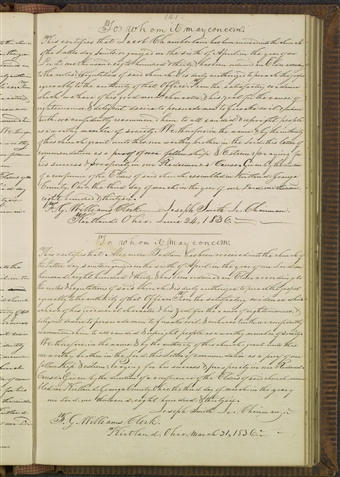 161
To whom it may concern
This certifies that Jacob Chamberlain has been received into the church
of the Latter day Saints organized on the sixth of April in the year of our
Lord one thousand eight hundred & thirty & has been ordained an Elder according
to the rules & regulations of said church & is duly authorized to preach the gospel
agreeably to the authority of that Office. From the satisfactory evidence
which we have of his good moral character & his zeal for the cause of
righteousness & diligent desire to persuade men to forsake evil & embrace
truth we confidently recommend him to all candid & upright people
as a worthy member of society. We therefore in the name & by the authority
of this church grant unto this our worthy brother in the Lord this letter of
commendation as a proof of our fellowship & Esteem: praying for
his success & prosperity in our Redeemer's Cause. Given by the direction
of a conference of the Elders of said church assembled in Kirtland Geauga
County Ohio the third day of March in the year of our Lord one thousand
eight hundred & thirty six.
F. G. Williams Clerk. Joseph Smith Jr. Chairman.
Kirtland Ohio June 24, 1836.
To whom it may concern:
This certifies that
has been received into the church of
the Latter day Saints organized on the sixth of April in the year of our Lord one
thousand eight hundred & thirty & has been ordained an Elder according to
the rules & regulations of said church & is duly authorized to preach the gospel
agreeably to the authority of that Office. From the satisfactory evidence which
we have of his good moral character & his zeal for the cause of righteousness, &
diligent desire to persuade men to forsake evil & embrace truth we confidently
recommend him to all candid & upright people as a worthy member of society.
We therefore in the name & by the authority of this church grant unto this
our worthy brother in the Lord this letter of commendation as a proof of our
fellowship & esteem: praying for his success & prosperity in our Redeemer's
Cause. Given by the direction of a conference of the Elders of said church assem-
bled in Kirtland Geauga County Ohio the third day of March in the year of
our Lord one thousand eight hundred & thirty six.
Joseph Smith Jr. Chairman
F. G. Williams Clerk.
Kirtland, Ohio March 31, 1836.